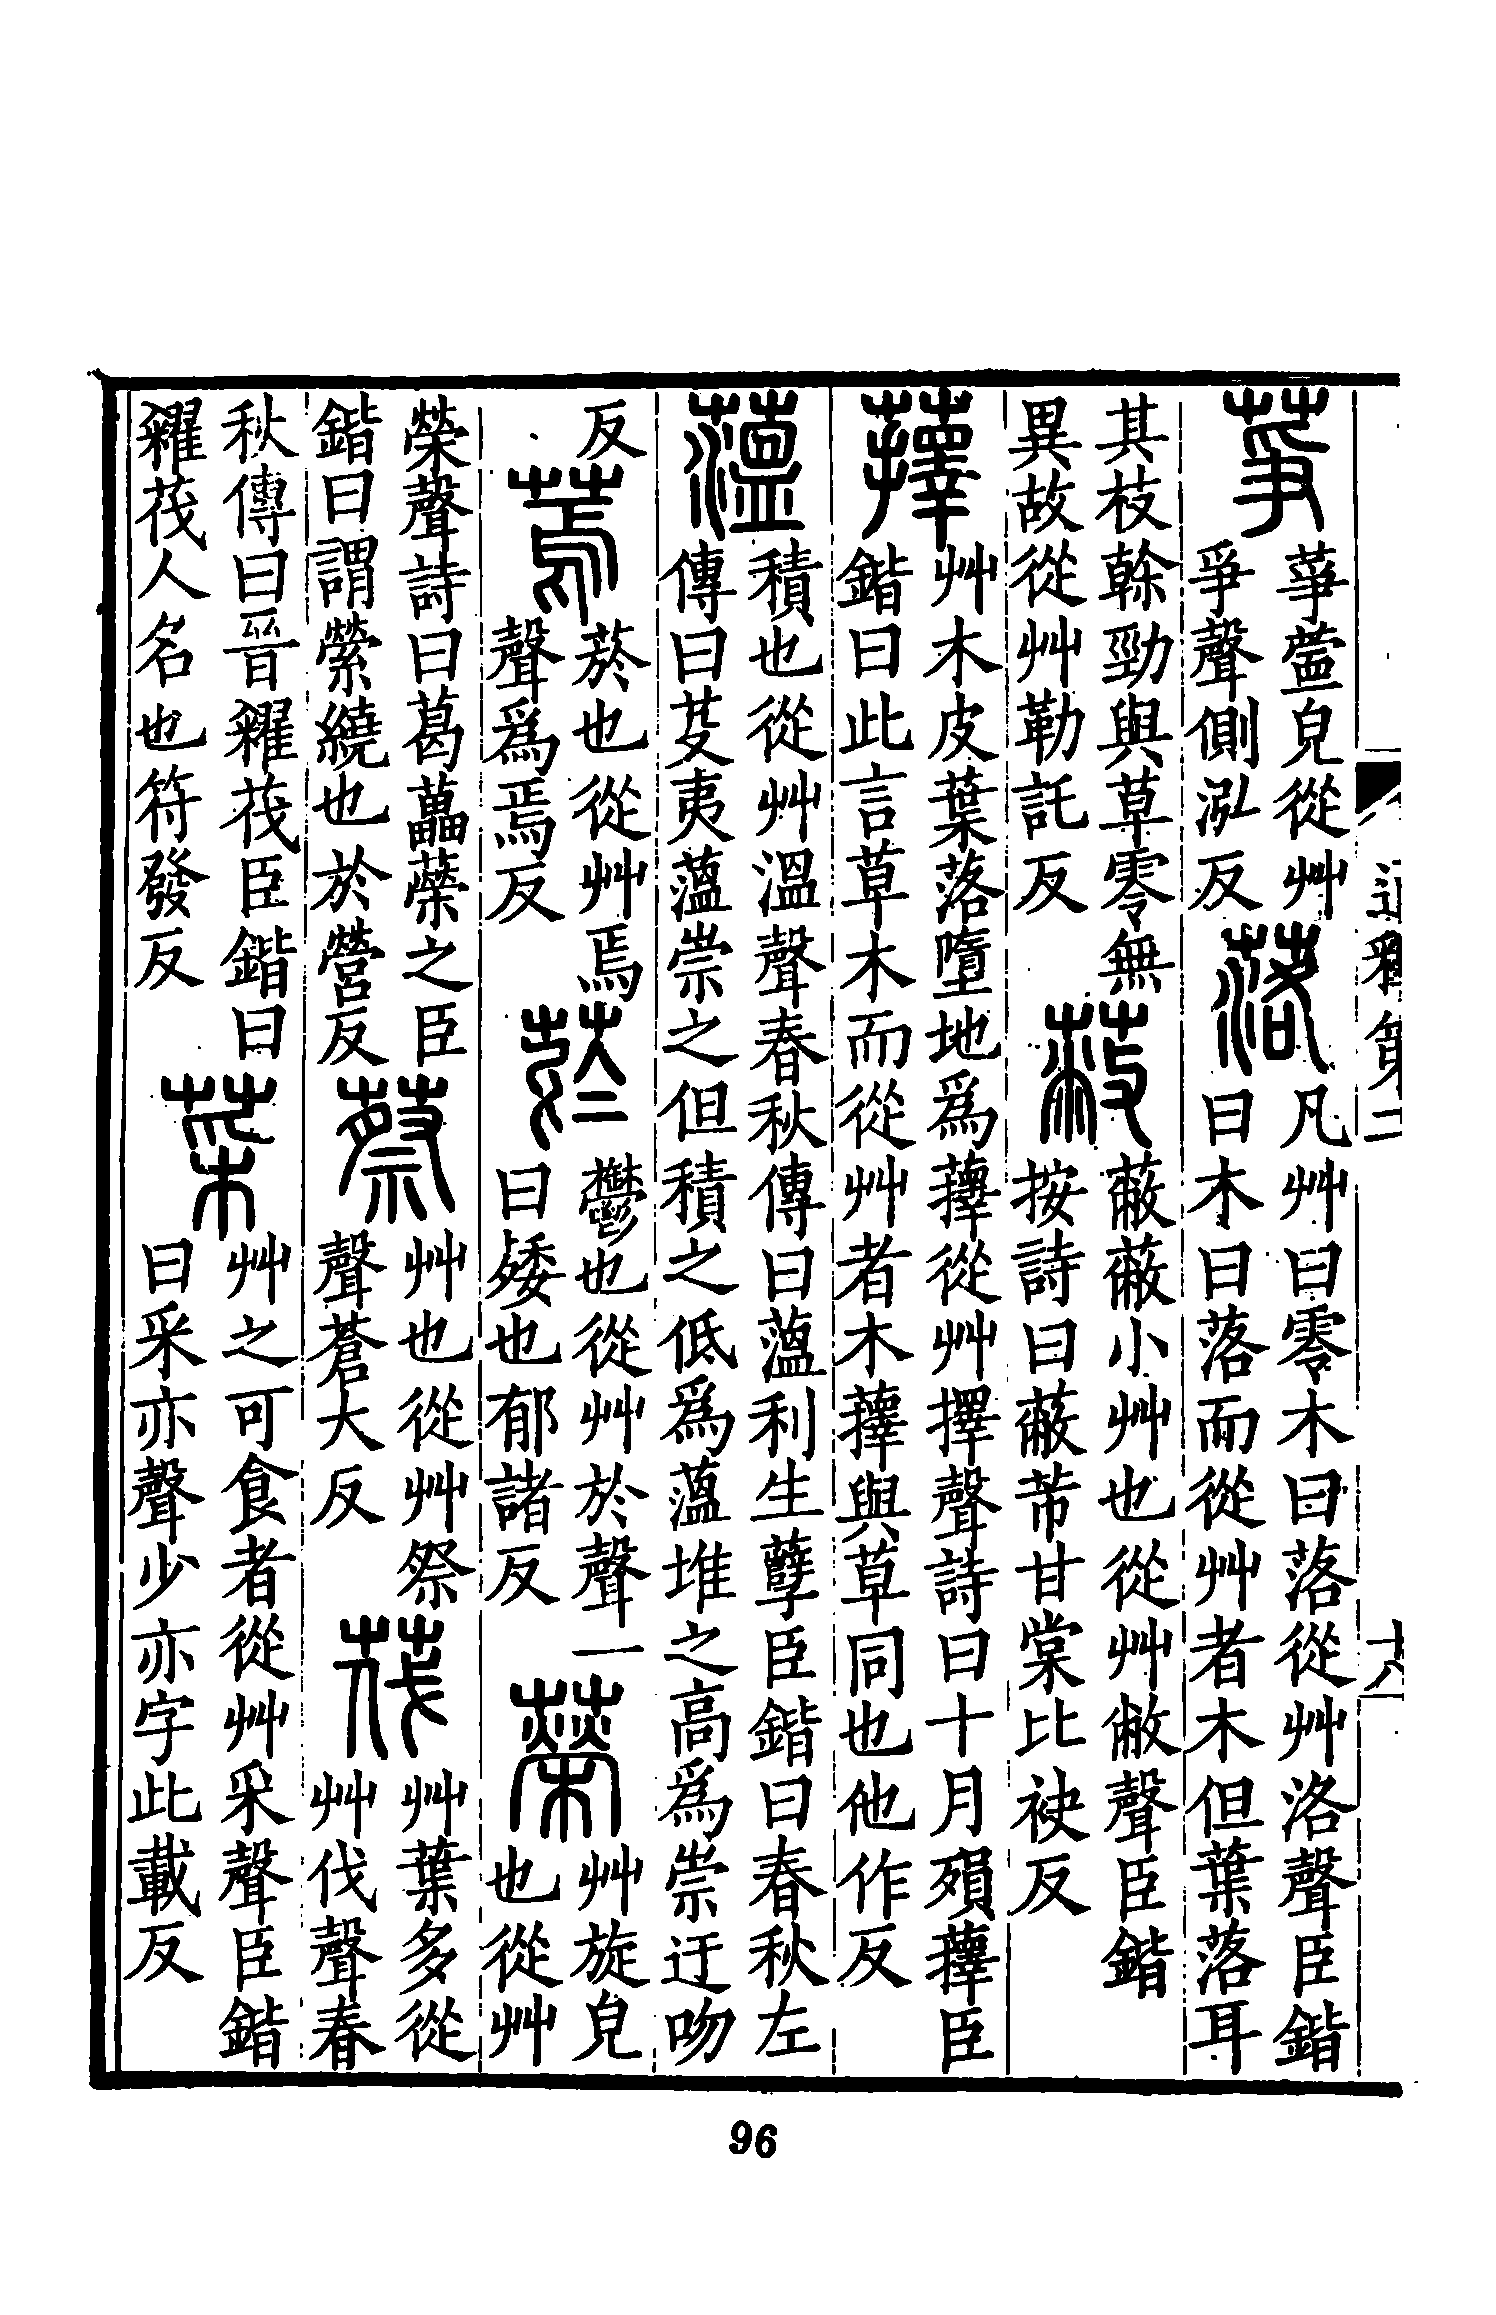 皃從艸
爭聲側泓反
落
凡艸曰零木曰落從艸洛聲臣鍇
曰木曰落而從艸者木但葉落耳
其枝榦勁與草零無
異故從艸勒託反
蔽
蔽蔽小艸也從艸敝聲臣鍇
按詩曰蔽芾甘棠比袂反
蘀
艸木皮葉落墮地爲蘀從艸擇聲詩曰十月殞蘀臣
鍇曰此言草木而從艸者木蘀與草同也他作反
薀
積也從艸溫聲春秋傳曰薀利生孽臣鍇曰春秋左
傳曰芟夷薀崇之但積之低爲薀堆之高爲崇迂吻
反
蔫
菸也從艸焉
聲爲焉反
菸
鬱也從艸於聲一
曰矮也郁諸反
艸旋皃
也從艸
榮聲詩曰葛藟之臣
鍇曰謂縈繞也於營反
蔡
艸也從艸祭
聲蒼大反
茷
艸葉多從
艸伐聲春
秋傳曰晉糴茷臣鍇曰
糴茷人名也符發反
菜
艸之可食者從艸采聲臣鍇
曰采亦聲少亦字此載反
通釋第二
十六
96